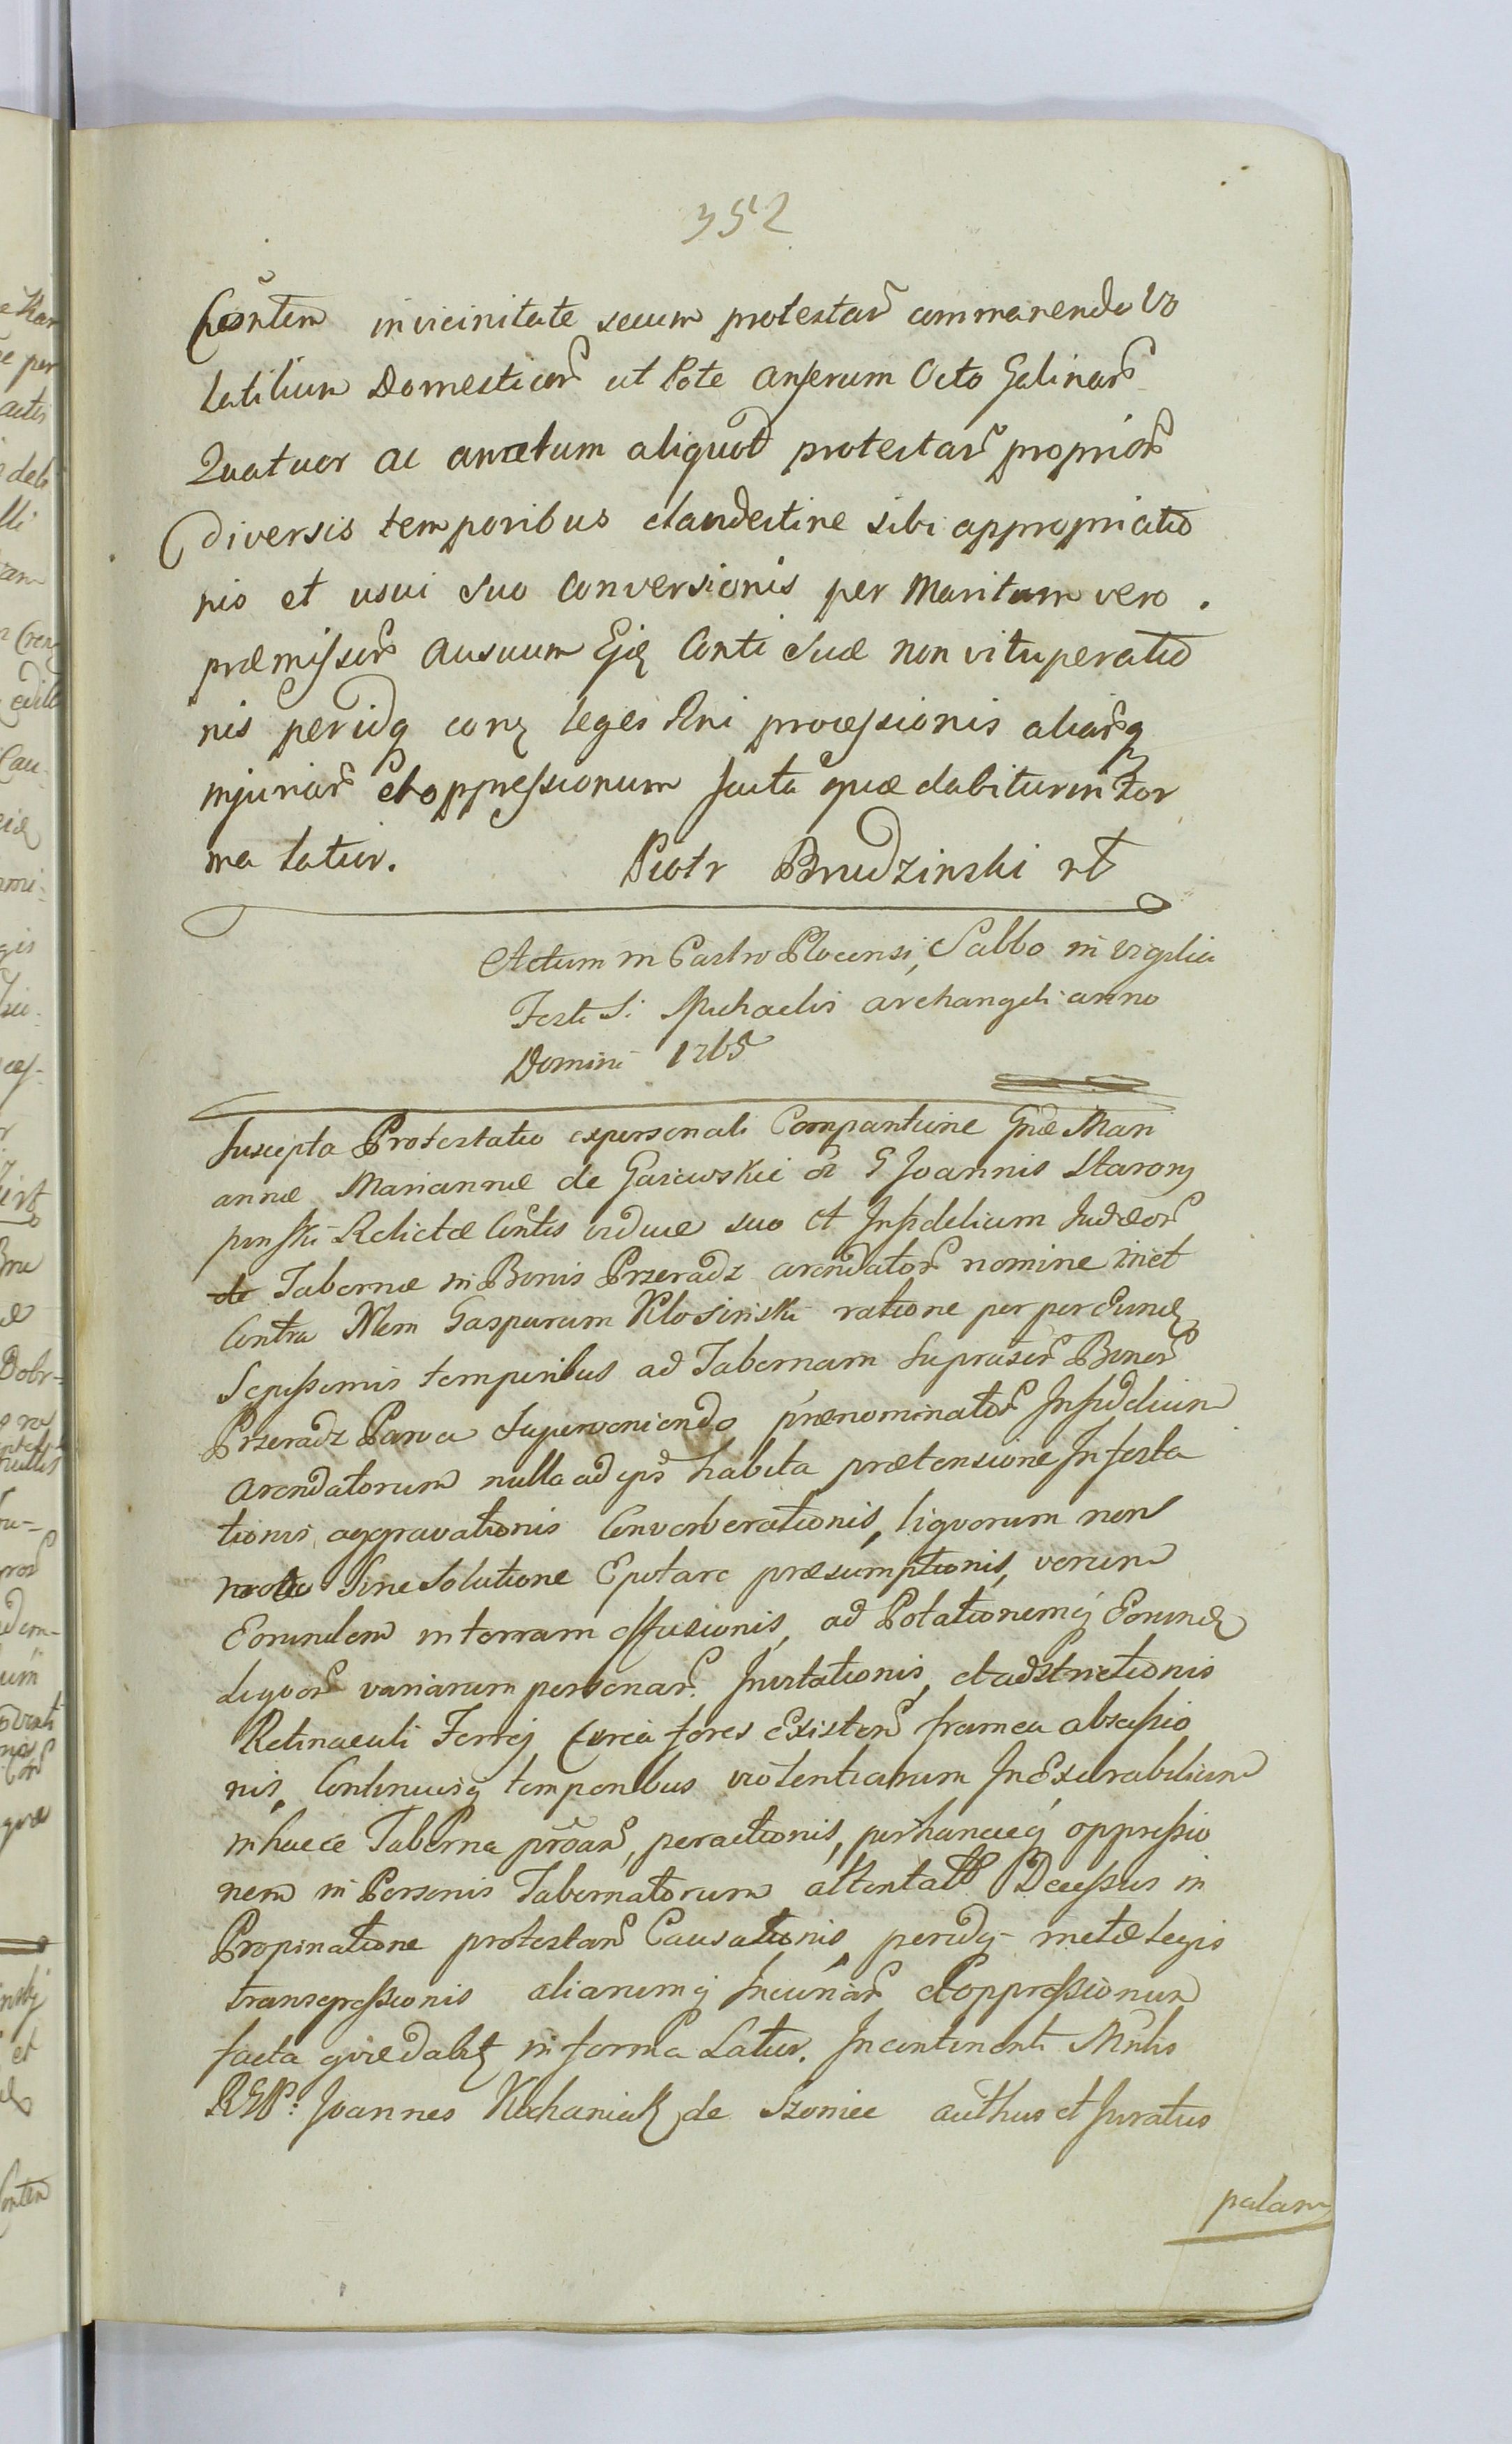 352
Contem in vicinitate secum protestar commanendo Vo
latilium Domesticor ut Pote anserum Octo Galinar
Quatuor ac anetum aliquod protestar proprior
Diversis temporibus clandestine sibi appropriatio
nis et usui suo conversionis per Maritum vero
præmissor ausuum Ejq Conti suæ non vituperatio
nis peridq conq leges Rni processionis aliarq
injuriar et oppressionum facta quæ dabitur in for
ma latior. Piotr Brudzinski rt
Actum in Castro Plocensi, Sabbo in vigilia
Festi S. Michaelis archangeli anno
Domini 1765
Suscepta Protestatio ex personali Comparitione Gnæ Mari
annæ Mariannæ de Gasewskie G Joannis Starorq
pinski Relictæ Contis viduæ suo et Infidelium Judæor
de Tabernæ in Bonis Przeradz arendator nomine inet
Contra Nlem Gasparum Klosinski ratione per pereundq
Sepissimis temporibus ad Tabernam suprascr Bonor
Przeradz Parva superveniendo prænominator Infidelium
arendatorum nulla ad ipsos habita prætensione Infesta
tionis aggravationis Converberationis, liquorum non
modo Sine Solutione Epotare præsumptionis, verum
Eorundem in terram effusionis, ad Potationemq Eorundq
Liquor variarum personar Invitationis, et adstrictionis
Retinaculi Ferrej Circa fores Existen framea abscissio
nis, Continuisq temporibus violentiarum InExcurabilium
in haece Taberna proar, peractionis, per hancceq oppressio
nem in Personis Tabernatorum attentat Decessus in
Propinatione protestan Causationis, peridq metæ legis
transgressionis aliarumq Injuriar et oppressionum
facta quæ dabit in forma Latior. In continenti Mnlis
RGP: Joannes Kochaniak de Szoniec authus et Juratus
palam